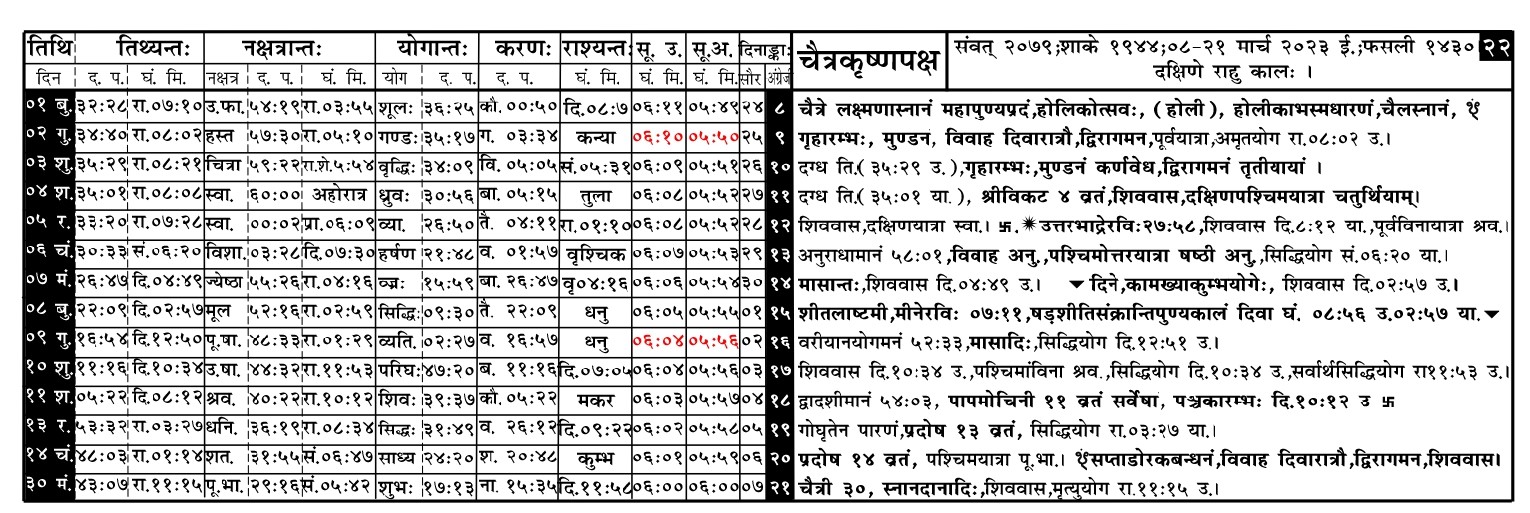 तिथि तिथ्यन्तः नक्षत्रान्तः योगान्तः करणः राश्यन्तः सू. उ. सू.अ. दिनाङ्काः चैत्रकृष्णपक्ष संवत् २०७९;शाके १९४४;०८-२१ मार्च २०२३ ई.;फसली १४३० २२
दिन द. प. घं. मि. नक्षत्र द. प. घं. मि. योग द. प. द. प. घं. मि. घं. मि. घं. मि. सौर अंग्रेजी दक्षिणे राहु कालः ।
०१ बु. ३२:२८ रा.०७:१० उ.फा. ५४:१९ रा.०३:५५ शूलः ३६:२५ कौ. ००:५० दि.०८:७ ०६:११ ०५:४९ २४ ८ चैत्रे लक्ष्मणास्नानं महापुण्यप्रदं,होलिकोत्सवः, (होली), होलीकाभस्मधारणं,चैलस्नानं,
०२ गु. ३४:४० रा.०८:०२ हस्त ५७:३० रा.०५:१० गण्डः ३५:१७ ग. ०३:३४ कन्या ०६:१० ०५:५० २५ ९ गृहारम्भः, मुण्डनं, विवाह दिवारात्रौ,द्विरागमन,पूर्वयात्रा,अमृतयोग रा.०८:०२ उ.।
०३ शु. ३५:२९ रा.०८:२१ चित्रा ५९:२२ रा.शे.५:५४ वृद्धिः ३४:०९ वि. ०५:०५ सं.०५:३१ ०६:०९ ०५:५१ २६ १० दग्ध ति.(३५:२९ उ.),गृहारम्भः,मुण्डनं कर्णवेध,द्विरागमनं तृतीयायां ।
०४ श. ३५:०१ रा.०८:०८ स्वा. ६०:०० अहोरात्र ध्रुवः ३०:५६ बा. ०५:१५ तुला ०६:०८ ०५:५२ २७ ११ दग्ध ति.(३५:०१ या.), श्रीविकट ४ व्रतं,शिववास,दक्षिणपश्चिमयात्रा चतुर्थियाम्।
०५ र. ३३:२० रा.०७:२८ स्वा. ००:०२ प्रा.०६:०९ व्या. २६:५० तै. ०४:११ रा.०१:१० ०६:०८ ०५:५२ २८ १२ शिववास,दक्षिणयात्रा स्वा.। 卐.✷उत्तरभाद्रेरविः२७:५८,शिववास दि.८:१२ या.,पूर्वविनायात्रा श्रव.।
०६ चं. ३०:३३ सं.०६:२० विशा. ०३:२८ दि.०७:३० हर्षण २१:४८ व. ०१:५७ वृश्चिक ०६:०७ ०५:५३ २९ १३ अनुराधामानं ५८:०१,विवाह अनु.,पश्चिमोत्तरयात्रा षष्ठी अनु.,सिद्धियोग सं.०६:२० या.।
०७ मं. २६:४७ दि.०४:४९ ज्येष्ठा ५५:२६ रा.०४:१६ व्ज्रः १५:५९ बा. २६:४७ वृ०४:१६ ०६:०६ ०५:५४ ३० १४ मासान्तः,शिववास दि.०४:४९ उ.। ▼दिने,कामख्याकुम्भयोगेः, शिववास दि.०२:५७ उ.।
०८ बु. २२:०९ दि.०२:५७ मूल ५२:१६ रा.०२:५९ सिद्धिः ०९:३० तै. २२:०९ धनु ०६:०५ ०५:५५ ०१ १५ शीतलाष्टमी,मीनेरविः ०७:११,षड्शीतिसंक्रान्तिपुण्यकालं दिवा घं. ०८:५६ उ.०२:५७ या.▼
०९ गु. १६:५४ दि.१२:५० पू.षा. ४८:३३ रा.०१:२९ व्यति. ०२:२७ व. १६:५७ धनु ०६:०४ ०५:५६ ०२ १६ वरीयानयोगमनं ५२:३३,मासादिः,सिद्धियोग दि.१२:५१ उ.।
१० शु. ११:१६ दि.१०:३४ उ.षा. ४४:३२ रा.११:५३ परिघः ४७:२० ब. ११:१६ दि.०७:०५ ०६:०४ ०५:५६ ०३ १७ शिववास दि.१०:३४ उ.,पश्चिमांविना श्रव.,सिद्धियोग दि.१०:३४ उ.,सर्वार्थसिद्धियोग रा११:५३ उ.।
११ श. ०५:२२ दि.०८:१२ श्रव. ४०:२२ रा.१०:१२ शिवः ३९:३७ कौ. ०५:२२ मकर ०६:०३ ०५:५७ ०४ १८ द्वादशीमानं ५४:०३, पापमोचिनी ११ व्रतं सर्वेषा, पञ्चकारम्भः दि.१०:१२ उ 卐
१३ र. ५३:३२ रा.०३:२७ धनि. ३६:१९ रा.०८:३४ सिद्धः ३१:४९ व. २६:१२ दि.०९:२२ ०६:०२ ०५:५८ ०५ १९ गोघृतेन पारणं,प्रदोष १३ व्रतं, सिद्धियोग रा.०३:२७ या.।
१४ चं. ४८:०३ रा.०१:१४ शत. ३१:५५ सं.०६:४७ साध्य २४:२० श. २०:४८ कुम्भ ०६:०१ ०५:५९ ०६ २० प्रदोष १४ व्रतं, पश्चिमयात्रा पू.भा.। सप्ताडोरकबन्धनं,विवाह दिवारात्रौ,द्विरागमन,शिववास।
३० मं. ४३:०७ रा.११:१५ पू.भा. २९:१६ सं.०५:४२ शुभः १७:१३ ना. १५:३५ दि.११:५८ ०६:०० ०६:०० ०७ २१ चैत्री ३०, स्नानदानादिः,शिववास,मृत्युयोग रा.११:१५ उ.।